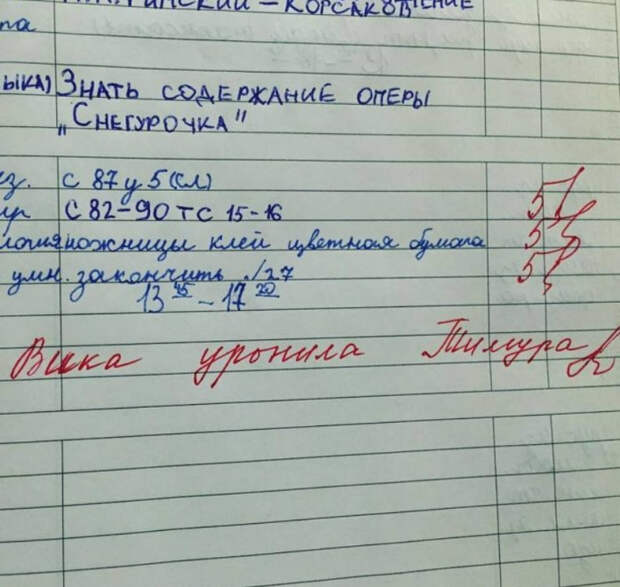 Римский – Корсаков
ыка) Знать содержание оперы
„Снегурочка"
с 87 у 5 (сл) 5
С 82–90 ТС 15–16 5
логия ножницы клей цветная бумага 5
умн. закончить
13 45 – 17 20
Вика уронила Тимура